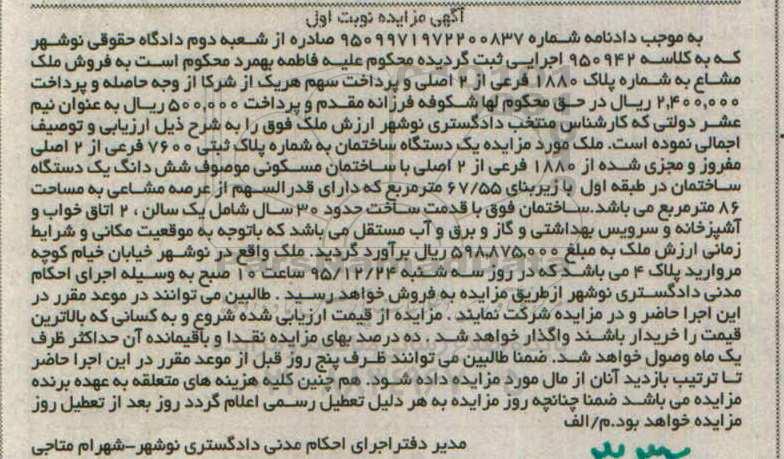 آگهی مزایده نوبت اول
به موجب دادنامه شماره ۹۵۰۹۹۷۱۹۷۲۲۰۰۸۳۷ صادره از شعبه دوم دادگاه حقوقی نوشهر
که به کلاسه ۹۵۰۹۴۲ اجرایی ثبت گردیده محکوم علیه فاطمه بهمرد محکوم است به فروش ملک
مشاع به شماره پلاک ۱۸۸۰ فرعی از ۲ اصلی و پرداخت سهم هریک از شرکا از وجه حاصله و پرداخت
۲,۴۰۰,۰۰۰ ریال در حق محکوم لها شکوفه فرزانه مقدم و پرداخت ۵۰۰,۰۰۰ ریال به عنوان نیم
عشر دولتی که کارشناس منتخب دادگستری نوشهر ارزش ملک فوق را به شرح ذیل ارزیابی و توصیف
اجمالی نموده است. ملک مورد مزایده یک دستگاه ساختمان به شماره پلاک ثبتی ۷۶۰۰ فرعی از ۲ اصلی
مفروز و مجزی شده از ۱۸۸۰ فرعی از ۲ اصلی با ساختمان مسکونی موصوف شش دانگ یک دستگاه
ساختمان در طبقه اول با زیربنای ۶۷/۵۵ مترمربع که دارای قدرالسهم از عرصه مشاعی به مساحت
۸۶ مترمربع می باشد.ساختمان فوق با قدمت ساخت حدود ۳۰ سال شامل یک سالن ، ۲ اتاق خواب و
آشپزخانه و سرویس بهداشتی و گاز و برق و آب مستقل می باشد که باتوجه به موقعیت مکانی و شرایط
زمانی ارزش ملک به مبلغ ۵۹۸۸۷۵۰۰۰ ریال برآورد گردید. ملک واقع در نوشهر خیابان خیام کوچه
مروارید پلاک ۴ می باشد که در روز سه شنبه ۹۵/۱۲/۲۴ ساعت ۱۰ صبح به وسیله اجرای احکام
مدنی دادگستری نوشهر ازطریق مزایده به فروش خواهد رسید . طالبین می توانند در موعد مقرر در
این اجرا حاضر و در مزایده شرکت نمایند . مزایده از قیمت ارزیابی شده شروع و به کسانی که بالاترین
قیمت را خریدار باشند واگذار خواهد شد . ده درصد بهای مزایده نقدا و باقیمانده آن حداکثر ظرف
یک ماه وصول خواهد شد. ضمنا طالبین می توانند ظرف پنج روز قبل از موعد مقرر در این اجرا حاضر
تا ترتیب بازدید آنان از مال مورد مزایده داده شود. هم چنین کلیه هزینه های متعلقه به عهده برنده
مزایده می باشد ضمنا چنانچه روز مزایده به هر دلیل تعطیل رسمی اعلام گردد روز بعد از تعطیل روز
مزایده خواهد بود.م/الف
مدیر دفتراجرای احکام مدنی دادگستری نوشهر-شهرام متاجی